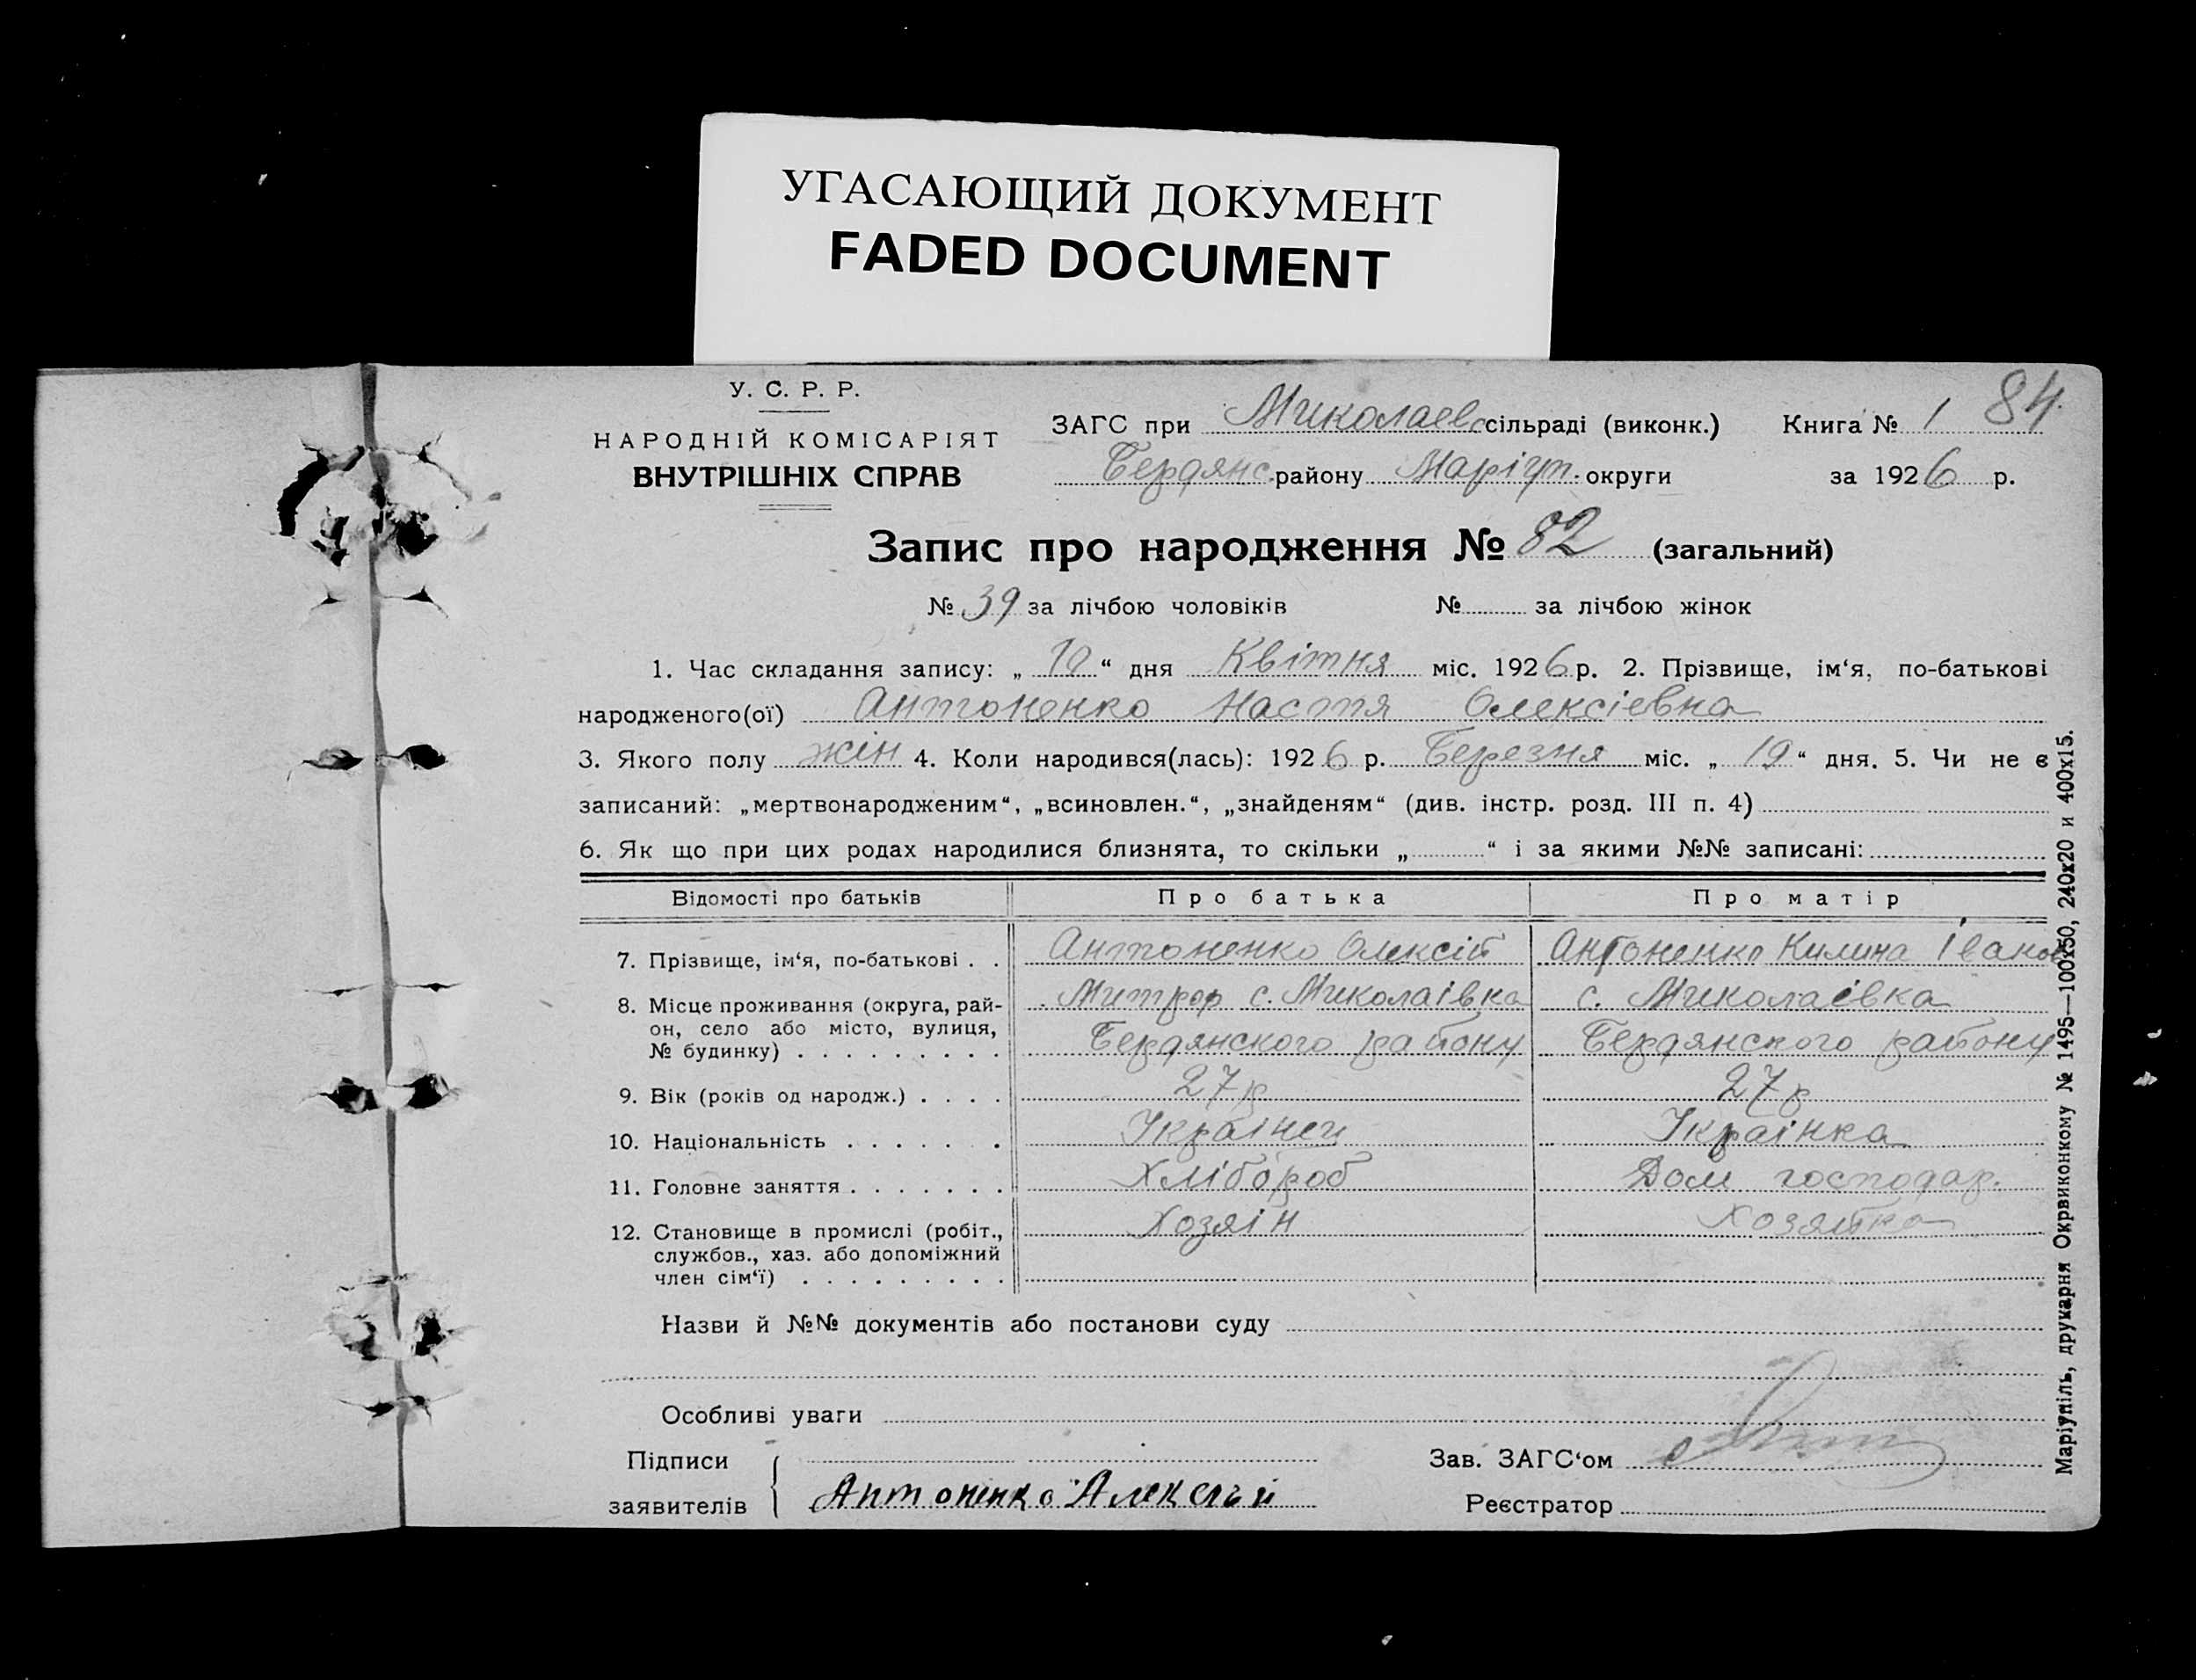 УГАСАЮЩИЙ ДОКУМЕНТ
FADED DOCUMENT
У. С. Р. Р.
НАРОДНІЙ КОМІСАРІЯТ
ВНУТРІШНІХ СПРАВ
ЗАГС при Миколаевс сільраді (виконк.) Книга № 1 84.
Бердянс. району Маріуп. округи за 1926 р.
Запис про народження № 82 (загальний)
№ 39 за лічбою чоловіків № за лічбою жінок
1. Час складання запису: „ 10 “ дня Квітня міс. 1926 р. 2. Прізвище, ім‘я, по-батькові
народженого(ої) Антоненко Настя Олексіевна
3. Якого полу жін 4. Коли народився(лась): 1926 р. Березня міс. „ 19 “ дня. 5. Чи не є
записаний: „мертвонародженим“, „всиновлен.“, „знайденям“ (див. інстр. розд. III п. 4)
6. Як що при цих родах народилися близнята, то скільки „ “ і за якими №№ записані:
Відомості про батьків Про батька Про матір
7. Прізвище, ім‘я, по-батькові . . Антоненко Олексій Антоненко Килина Іванов
8. Місце проживання (округа, рай- Митроф с. Миколаівка с. Миколаівка
он, село або місто, вулиця,
№ будинку) . . . . . . . . . Бердянского району Бердянского району
9. Вік (років од народж.) . . . . 27 р 27 р
10. Національність . . . . . . . Украінец Украінка
11. Головне заняття . . . . . . . Хлібороб Дом господар.
12. Становище в промислі (робіт., Хозяін Хозяйка
службов., хаз. або допоміжний
член сім‘ї) . . . . . . . . .
Назви й №№ документів або постанови суду
Особливі уваги
Підписи Зав. ЗАГС‘ом
заявителів Антоненко Алексъй Реєстратор
Маріупіль, друкарня Окрвиконкому № 1495—100х50, 240х20 и 400х15.